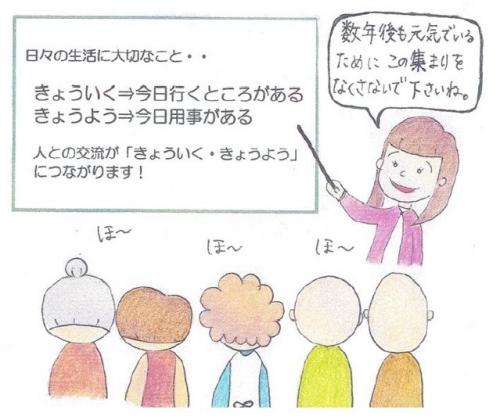 日々の生活に大切なこと・・
きょういく⇒今日行くところがある
きょうよう⇒今日用事がある
人との交流が「きょういく・きょうよう」
につながります！
数年後も元気でいる
ために この集まりを
なくさないで下さいね。
ほ～
ほ～
ほ～